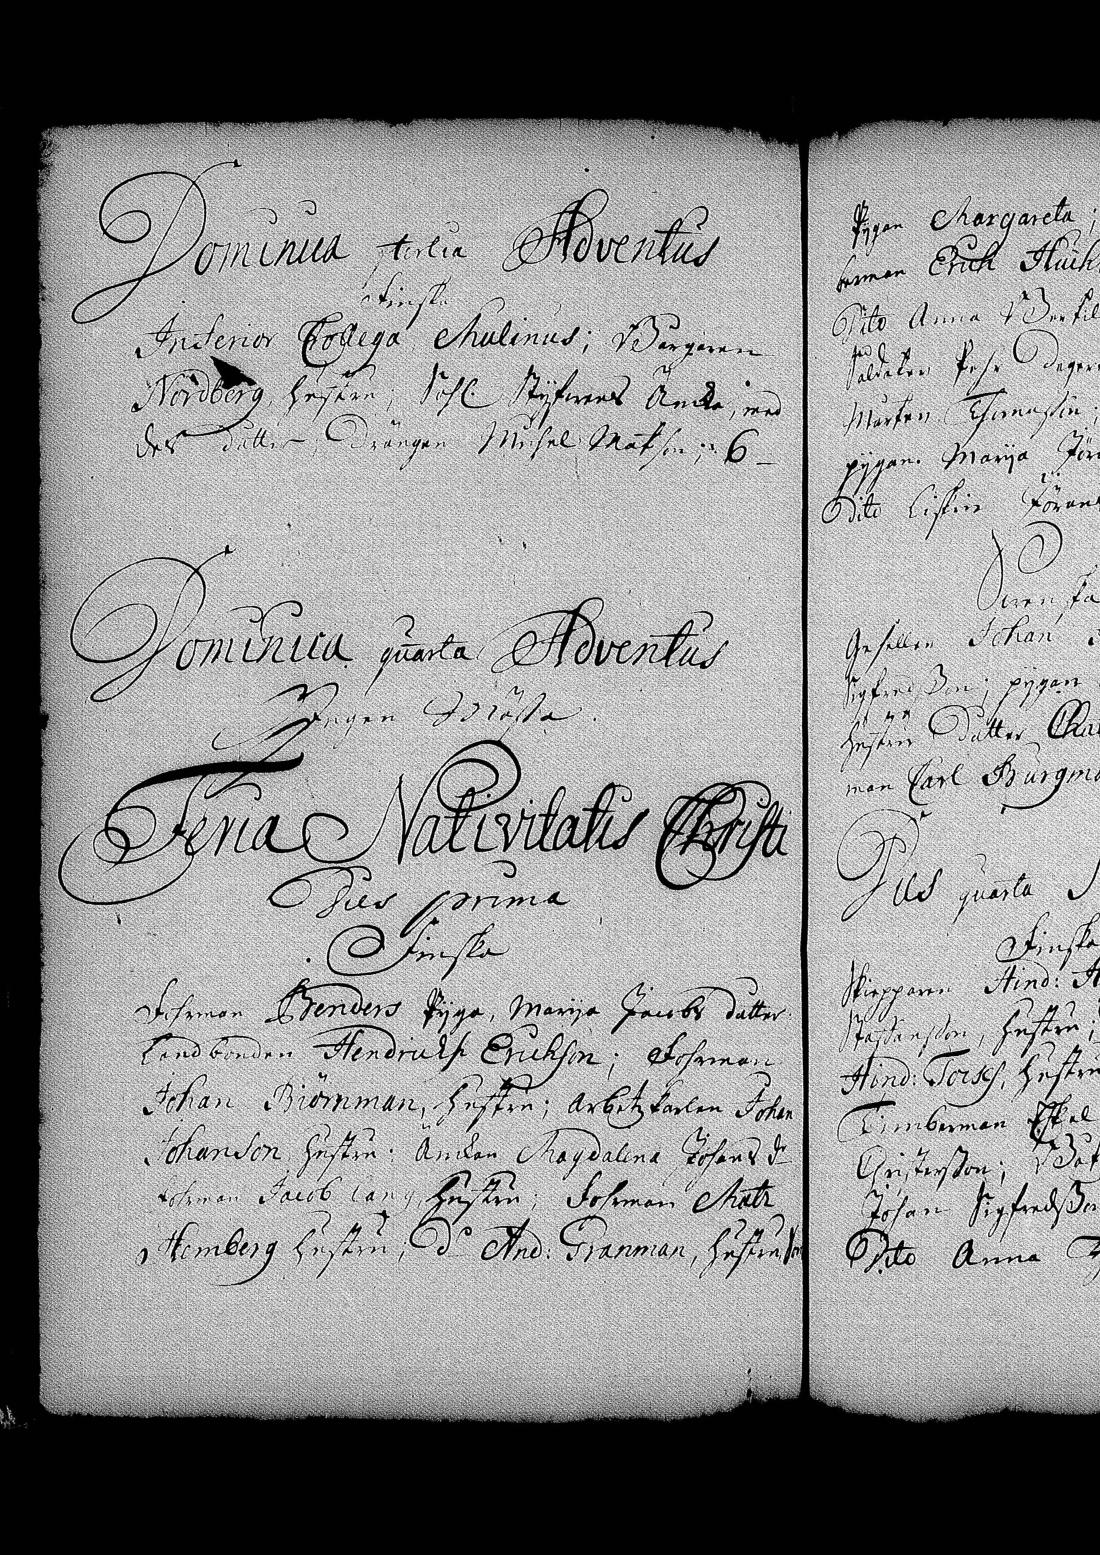 Dominica tertia Adventus
Finska
Inferior Collega Mulinus; Borgaren
Nordberg, hustru, Sohl. Styfwens Änka, med
des dotter, Drängen Michel Matson; 6
Dominica quarta Adventus
Ingen Mässa.
Feria Nativitatis Christi
Dies prima
Finska
Fohrman Benders Pyga, Marija Jacobs dotter
Landbonden Hendrich Erichson; Fohrman
Johan Biörnman, hustru; Arbetzkarlen Johan
Johanson hustru: Änkan Magdalena Johans dr
Fohrman Jacob Lang hustru; Fohrman Matz
Hemberg hustru; do And: Granman, hustru
Pygan Margareta;
Erich
Dito Anna
Soldaten Pehr
Mårten Thomasson;
pygan. Marija
Dito
Swenska
Gesellen Johan
Sigfredson; pygan
hustru dotter
man Carl Burgman
Dies quarta
Finska
Skepparen Hind:
Staffansson, hustru;
Hind: hustru
Timberman Eskel
Christersson;
Johan Sigfredsson
Dito Anna